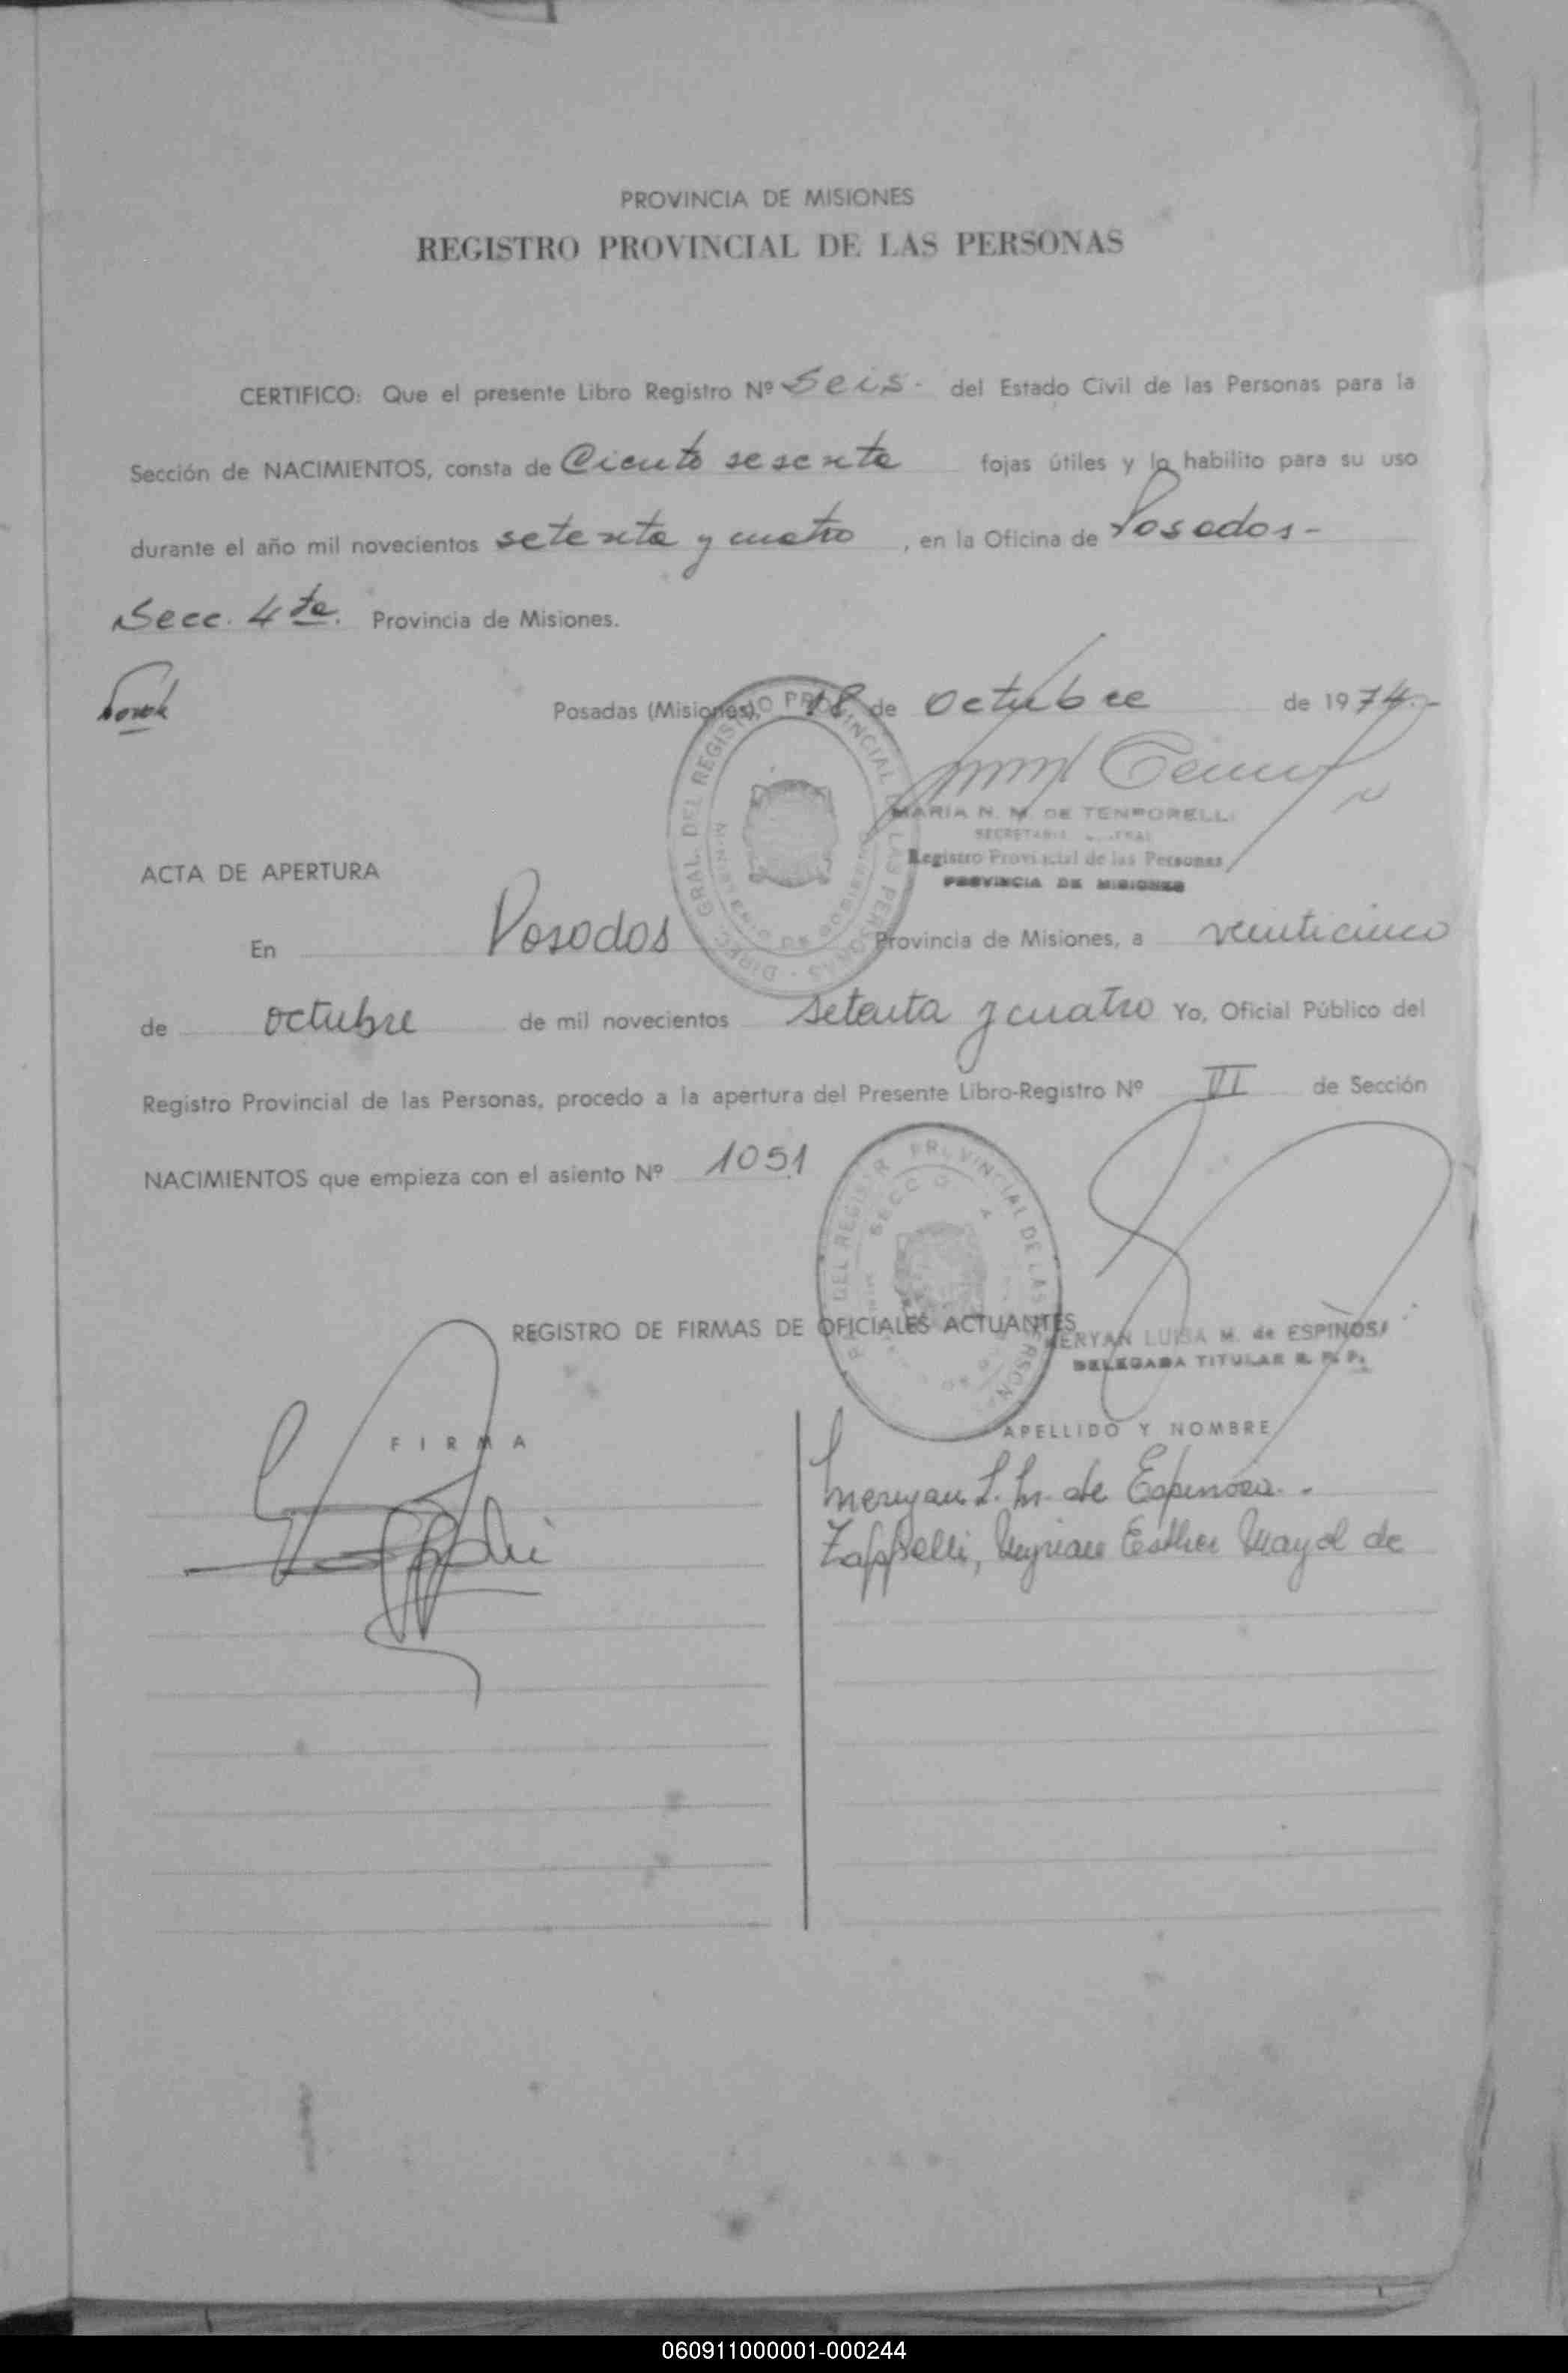 PROVINCIA DE MISIONES
REGISTRO PROVINCIAL DE LAS PERSONAS
CERTIFICO: Que el presente Libro Registro Nº Seis - del Estado Civil de las Personas para la
Sección de NACIMIENTOS, consta de Ciento sesenta fojas útiles y lo habilito para su uso
durante el año mil novecientos setenta y cuatro, en la Oficina de Posadas -
Secc. 4ta. Provincia de Misiones.
Posadas (Misiones), 18 de octubre de 1974.-
MARIA N. M. DE TEMPORELLI
Registro Provincial de las Personas
PROVINCIA DE MISIONES
DIREC. GRAL. DEL REGISTRO PROVINCIAL DE LAS PERSONAS
ACTA DE APERTURA
En Posadas Provincia de Misiones, a veinticinco
de octubre de mil novecientos setenta y cuatro Yo, Oficial Público del
Registro Provincial de las Personas, procedo a la apertura del Presente Libro-Registro Nº VI de Sección
NACIMIENTOS que empieza con el asiento Nº 1051
REGISTRO DE FIRMAS DE OFICIALES ACTUANTES
MERYAN LUISA M. de ESPINOSA
DELEGADA TITULAR R. P. P.
FIRMA
APELLIDO Y NOMBRE
Meryan L. M. de Espinosa.
Zappelli, Myriam Esther Mayol de
060911000001-000244